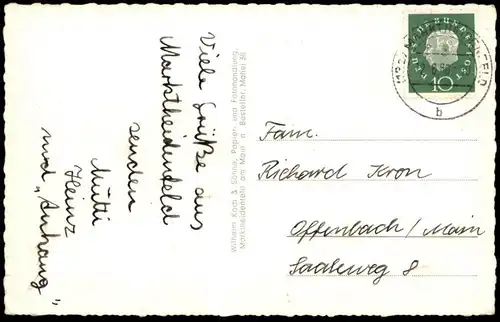 Viele Grüße aus
Marktheidenfeld
senden
Mutti
Heinz
und „Anhang"
Wilhelm Koch & Söhne, Papier- und Fotohandlung,
Marktheidenfeld am Main
DEUTSCHE BUNDESPOST
10
b
Fam.
Richard Kron
Offenbach/Main
Saaleweg 8